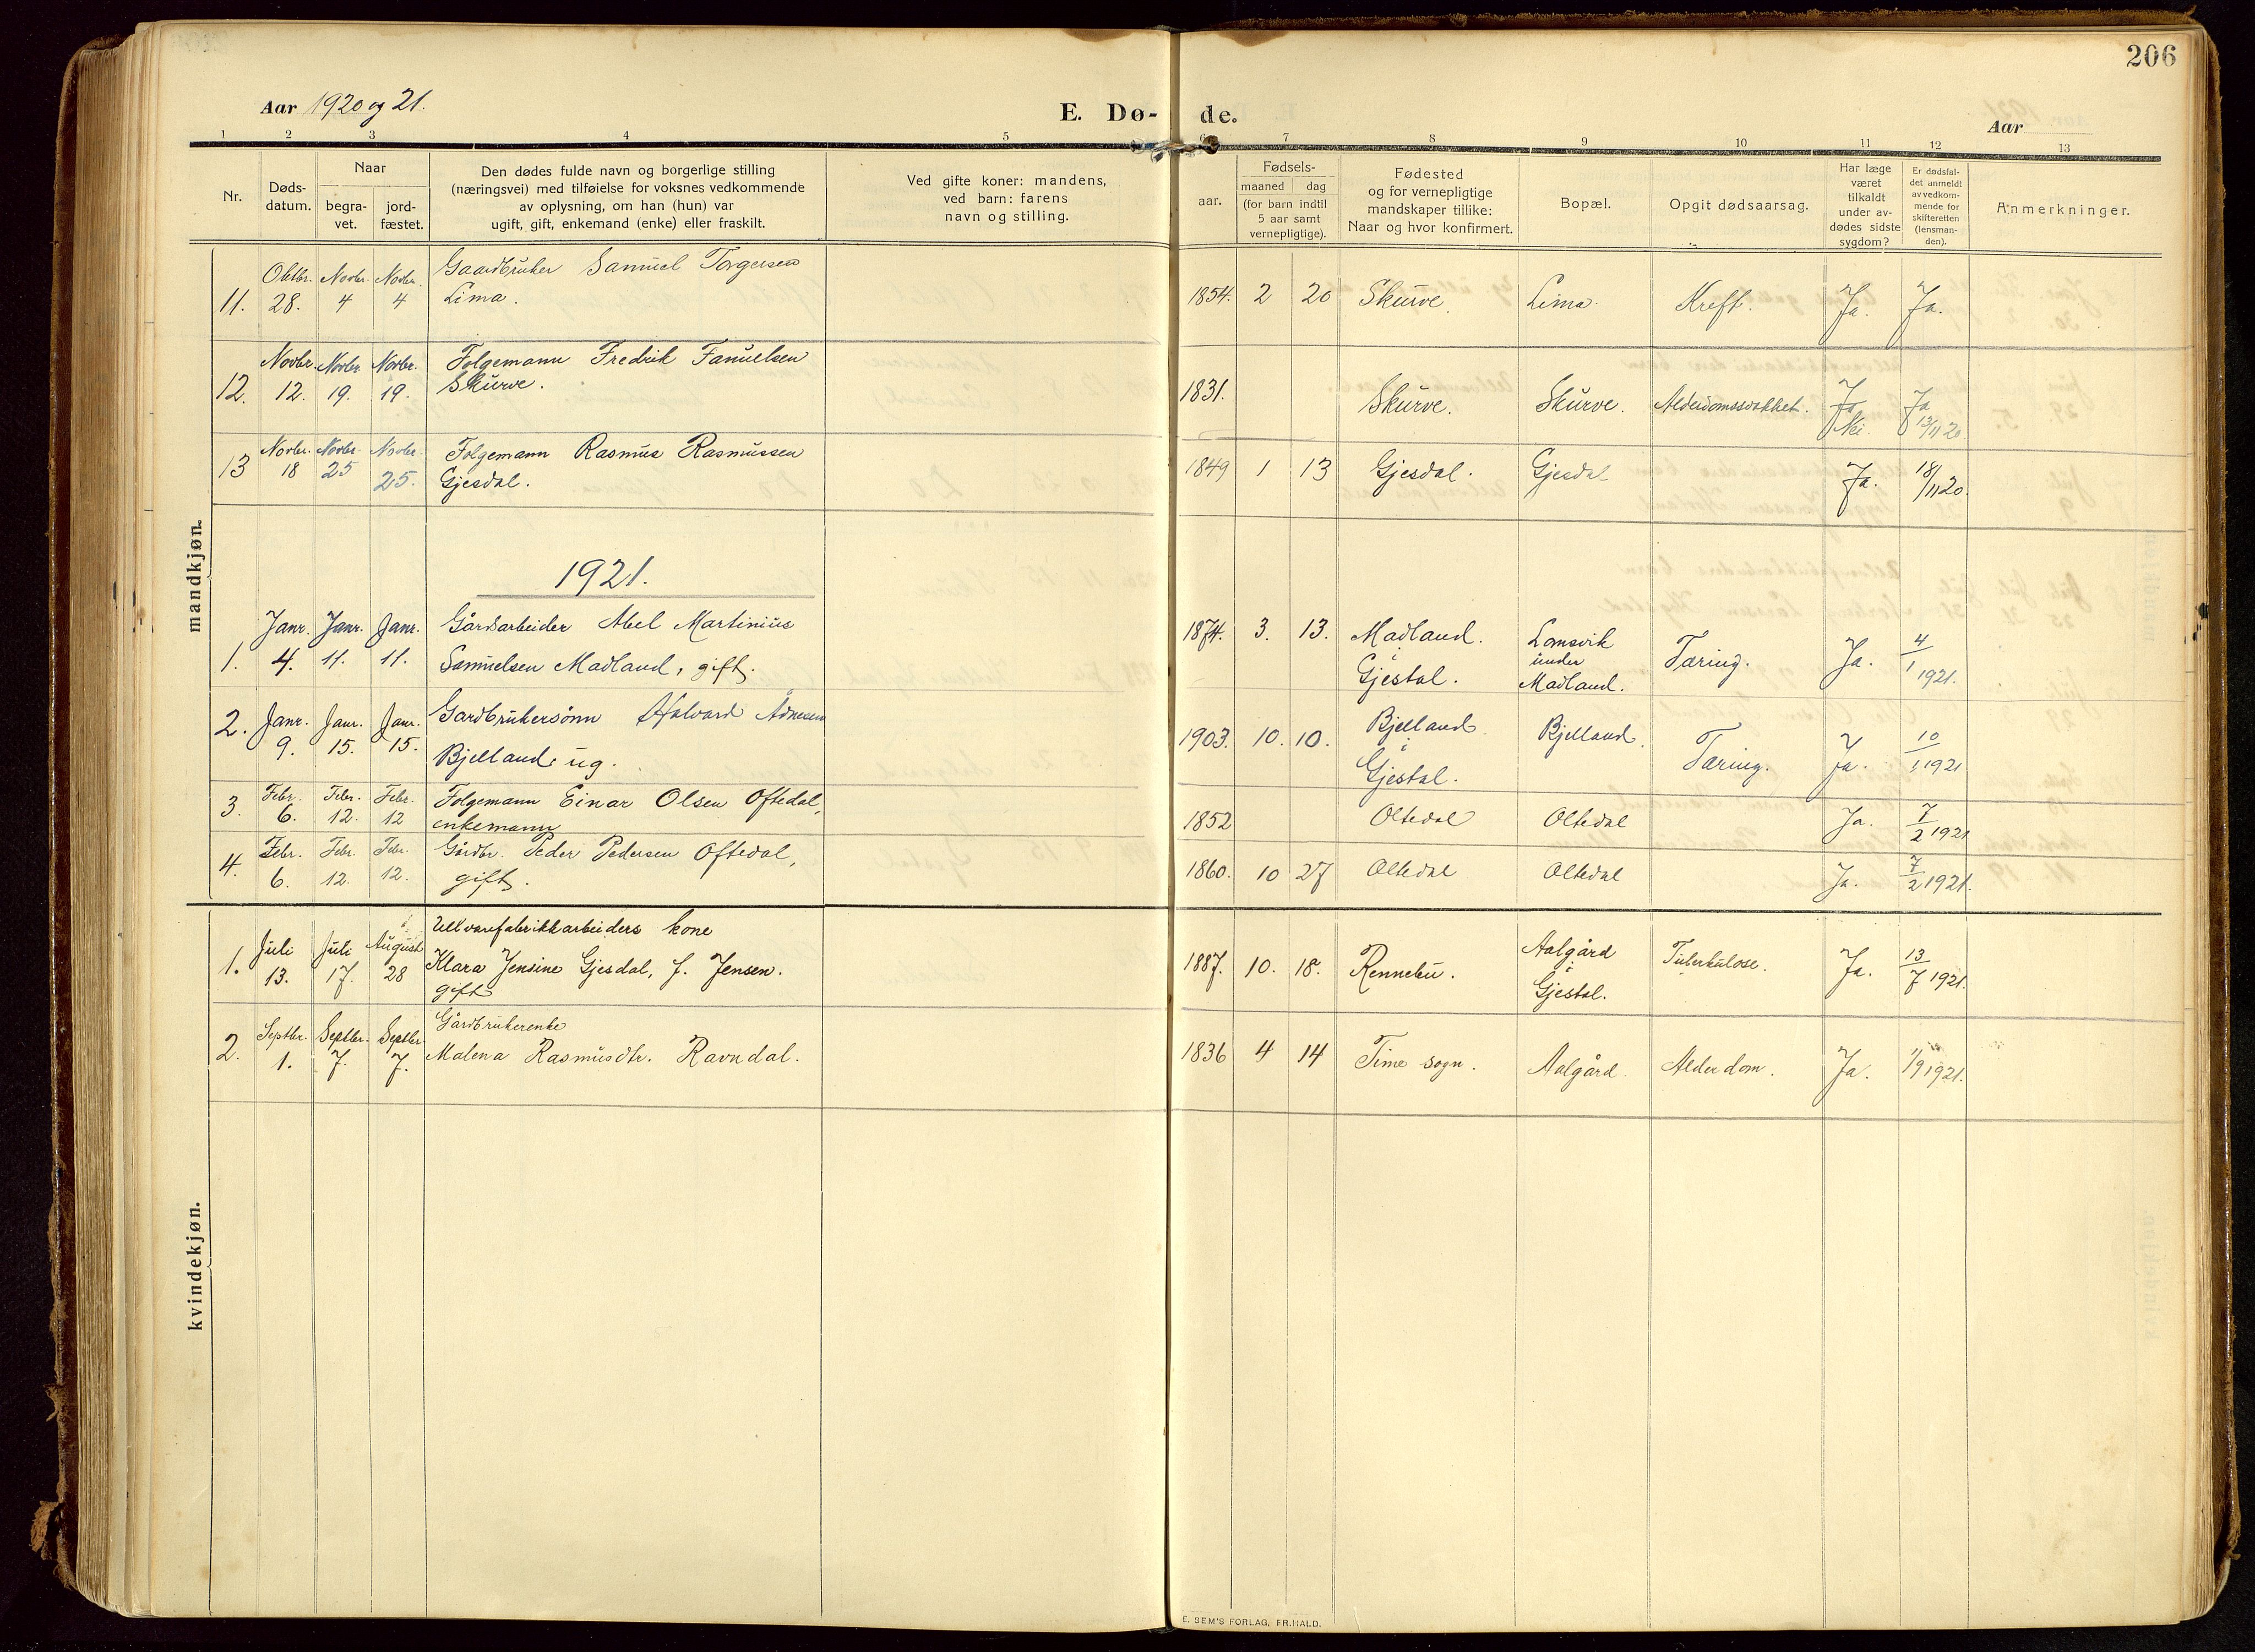 206
Aar 1920 og 21.
E. Dø- de.
Aar
1 2 3 4 5 6 7 8 9 10 11 12 13
Nr.
Døds-
datum.
Naar
begra-
vet.
jord-
fæstet.
Den dødes fulde navn og borgerlige stilling
(næringsvei) med tilføielse for voksnes vedkommende
av oplysning, om han (hun) var
ugift, gift, enkemand (enke) eller fraskilt.
Ved gifte koner: mandens,
ved barn: farens
navn og stilling.
Fødsels-
aar.
maaned dag
(for barn indtil
5 aar samt
vernepligtige).
Fødested
og for vernepligtige
mandskaper tillike:
Naar og hvor konfirmert.
Bopæl.
Opgit dødsaarsag.
Har læge
været
tilkaldt
under av-
dødes sidste
sygdom?
Er dødsfal-
det anmeldt
av vedkom-
mende for
skifteretten
(lensman-
den).
Anmerkninger.
mandkjøn.
Oktbr. Novbr. Novbr. Gaardbruker Samuel Torgersen
11. 28. 4 4 Lima. 1854. 2 20 Skurve. Lima. Kreft. Ja. Ja.
Novbr. Novbr. Novbr. Folgemann Fredrik Fanuelsen
12. 12. 19. 19. Skurve. 1831. Skurve. Skurve. Alderdomssvakhet. Ja Ja
Nei. 13/11 20
Novbr. Novbr. Novbr. Folgemann Rasmus Rasmussen
13 18 25 25. Gjesdal. 1849 1 13 Gjesdal. Gjesdal Ja. 18/11 20.
1921.
Janr. Janr. Janr. Gårdsarbeider Abel Martinius
1. 4. 11. 11. Samuelsen Madland, gift. 1874. 3. 13. Madland. i Gjestal. Lomsvik under Madland. Tæring. Ja. 4/1 1921.
2. Janr. Janr. Janr. Gardbrukersønn Halvard Ådnesen
9. 15. 15. Bjelland, ug. 1903. 10. 10. Bjelland i Gjestal. Bjelland. Tæring. Ja. 10/1 1921
3. Febr. Febr. Febr. Folgemann Einar Olsen Oftedal,
6. 12. 12 enkemann 1852 Oltedal Oltedal Ja. 7/2 1921
4. Febr. Febr. Febr. Gårdbr. Peder Pedersen Oftedal,
6. 12. 12. gift. 1860. 10 27 Oltedal Oltedal Ja. 7/2 1921.
kvindekjøn.
Ullvarefabrikkarbeiders kone
1. Juli Juli August Klara Jensine Gjesdal, f. Jensen.
13. 17. 28 gift 1887. 10. 18. Rennebu. Aalgård i Gjestal. Tuberkulose. Ja. 13/7 1921.
Gårdbrukerenke
2. Septbr. Septbr. Septbr Malena Rasmusdtr. Ravndal.
1. 7. 7. 1836 4 14 Time sogn. Aalgård. Alderdom. Ja. 1/9 1921.
E. SEM'S FORLAG, FR.HALD.